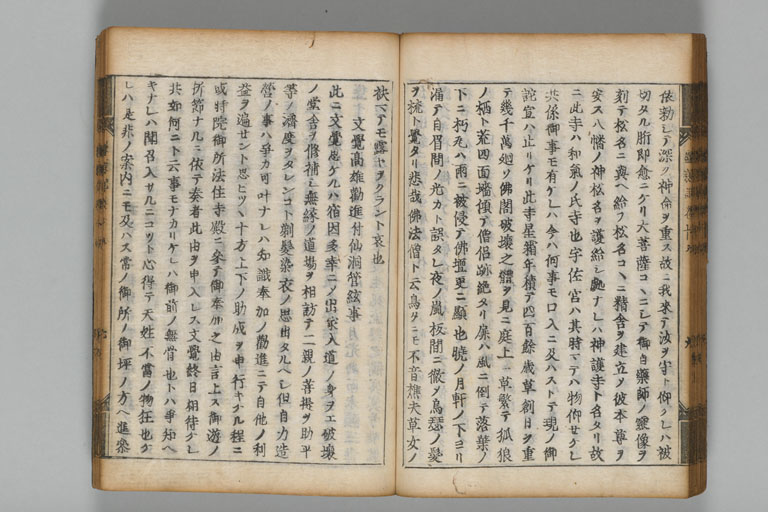 依勅シテ深ク神命ヲ重ス故ニ我来テ汝ヲ守ト仰クレハ被
切タル所即愈ニケリ大菩薩コヽニシテ御自薬師ノ霊像ヲ
刻テ松名ニ與ヘ給フ松名コヽニ精舎ヲ建立ヲ彼本尊ヲ
安ス八幡ノ神松名ヲ護給シ処ナレハ神護寺ト名タリ故
ニ此寺ハ和氣ノ氏寺也宇佐宮ハ其時マテハ物仰セケレ
共係御事モ有ケレハ今ハ何事モロ入ニ及ハストテ現ノ御
託宣ハ止リケリ此寺星霜年積テ四百餘歳草創日ヲ重
テ幾千万廻ソ佛閣破壊之體ヲ見ニ庭上ニ草繁テ孤狼
ノ栖ト荒四面墻傾テ僧侶跡絶タリ扉ハ風ニ倒テ落葉ノ
下ニ朽瓦ハ雨ニ被侵テ佛壇更ニ顕也曉ノ月軒ノ下ヨリ
漏テ自眉間ノ光カト誤タレ夜ノ嵐板間ニ徹ヲ烏瑟ノ髪
ヲ梳ト覺タリ悲哉佛法僧ト云鳥タニモ不音樵夫草女ノ
袂マテモ露ヤヲクラント哀也
文覺高雄勸進付仙洞管絃事
此ニ文覺思ケルハ宿因多幸ニノ出家入道ノ身ヲエ破壊
ノ堂舎ヲ修補シ無縁ノ道場ヲ相訪テ二親ノ菩提ヲ助平
等ノ濟度ヲタレンコト剃髪染衣ノ思出タルヘシ但自力造
營ノ事ハ爭カ可叶ナレハ知識奉加ノ勸進ニテ自他ノ利
益ヲ遍セント思ヒツヽ十方上下ノ助成ヲ申行キケル程ニ
或時院御所法住寺殿ニ参テ御奉加之由言上ス御遊ノ
折節ナルニ依テ奏者此由ヲ申入レス文覺終日相待ケレ
共如何ニト云事モナカリケレハ御前ノ無骨也トハ爭知ヘ
キナレハ聞召入サルニコソト心得テ天姓不當ノ物狂也ケ
レハ是非ノ案内ニモ及ハス常ノ御所ノ御坪ノ方ヘ進参